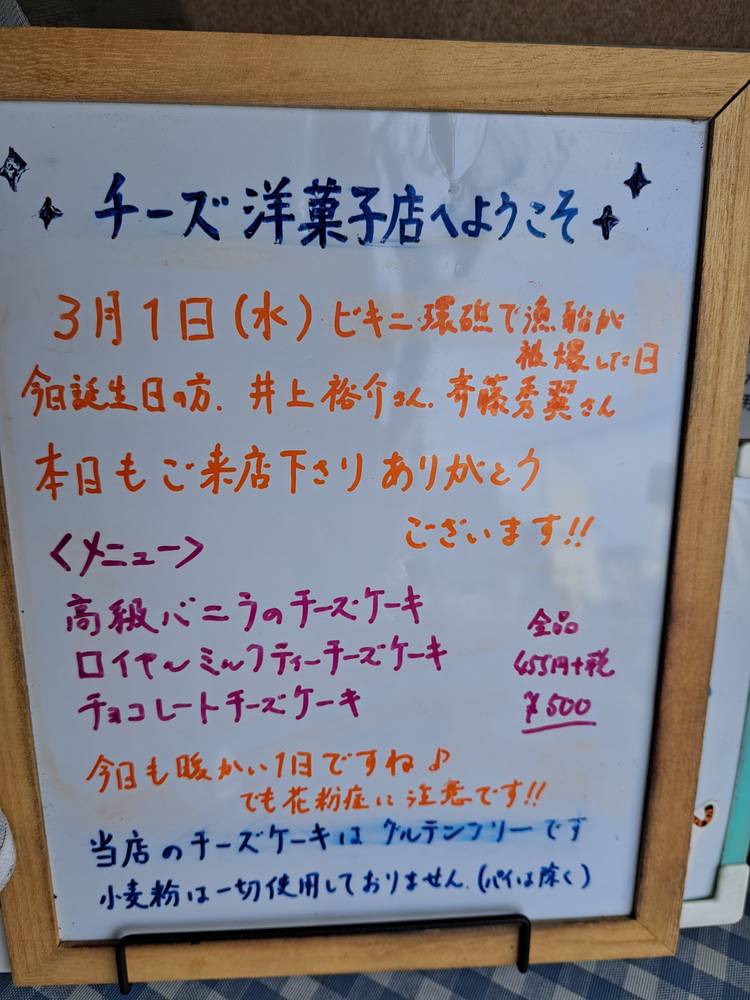 チーズ洋菓子店へようこそ
3月1日(水)ビキニ環礁で漁船が
被爆した日
今日誕生日の方、井上裕介さん、斉藤秀翼さん
本日もご来店下さりありがとう
ございます!!
<メニュー>
高級バニラのチーズケーキ
ロイヤルミルクティーチーズケーキ
チョコレートチーズケーキ
全品
455円+税
¥500
今日も暖かい1日ですね♪
でも花粉症に注意です!!
当店のチーズケーキはグルテンフリーです
小麦粉は一切使用しておりません。(パイは除く)